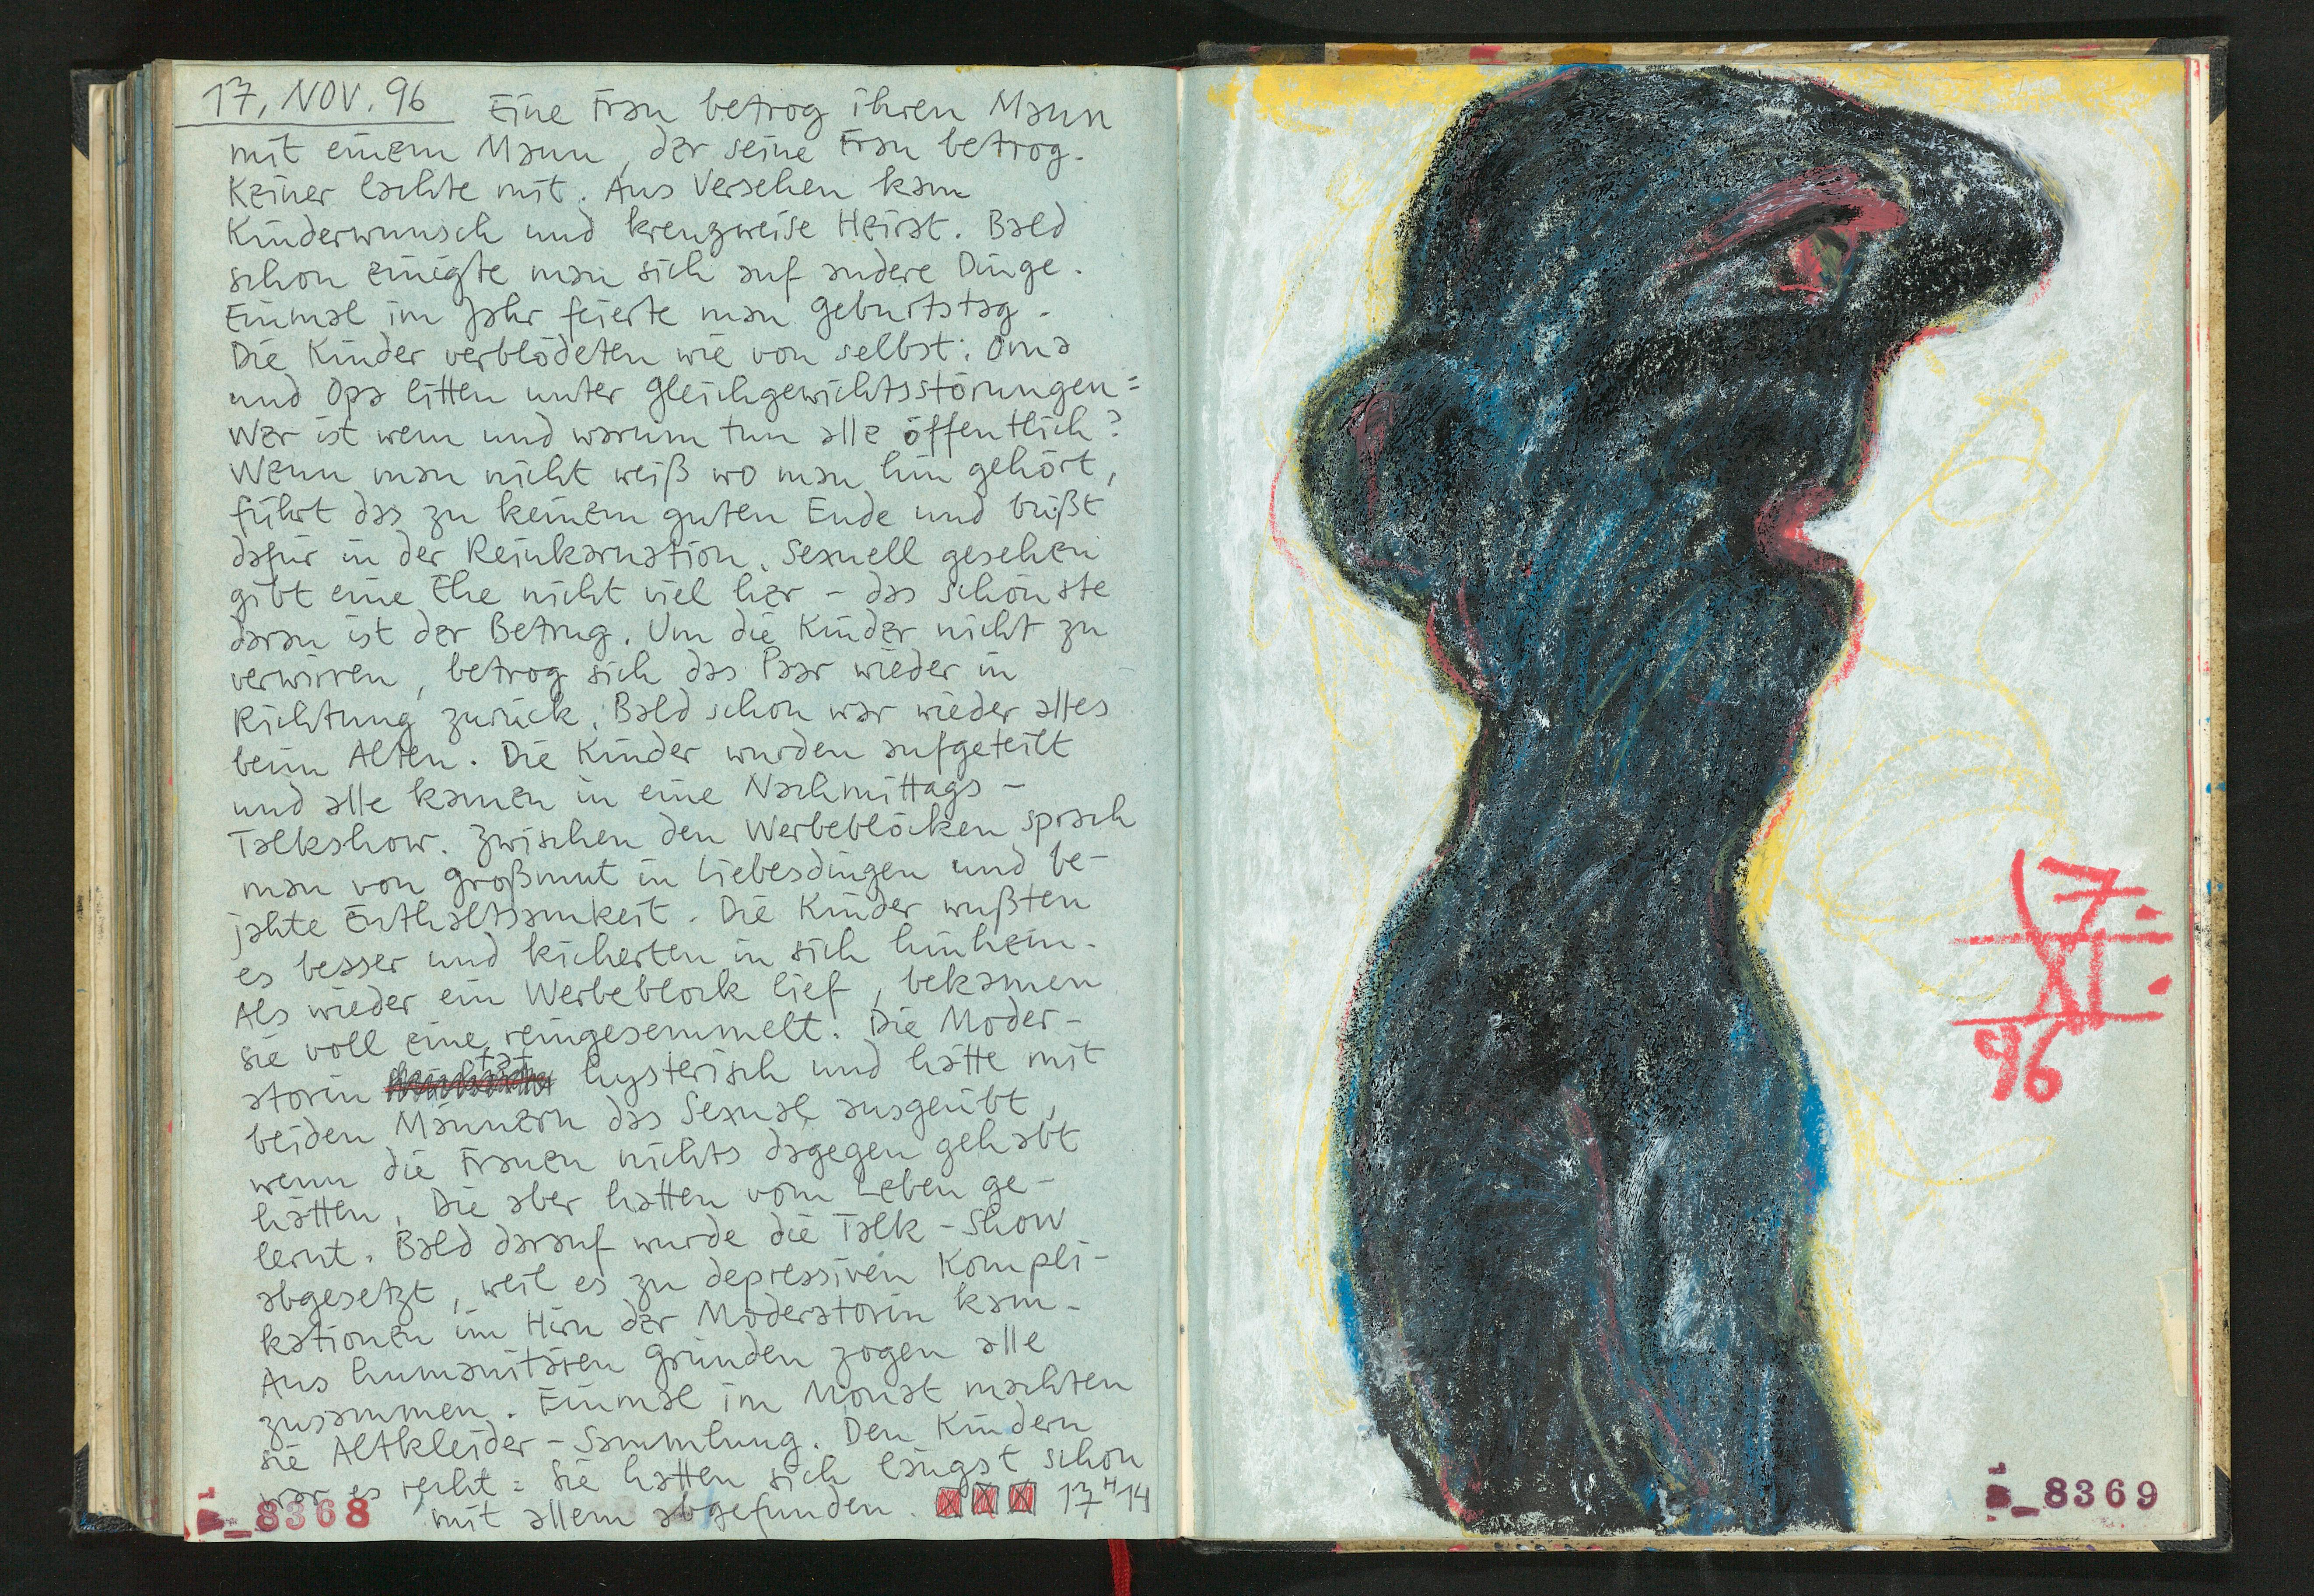 17. NOV. 96 Eine Frau betrog ihren Mann
mit einem Mann, der seine Frau betrog.
Keiner lachte mit. Aus Versehen kam
Kinderwunsch und kreuzweise Heirat. Bald
schon einigte man sich auf andere Dinge.
Einmal im Jahr feierte man Geburtstag.
Die Kinder verblödeten wie von selbst; Oma
und Opa litten unter Gleichgewichtsstörungen =
Wer ist wem und warum tun alle öffentlich?
Wenn man nicht weiß wo man hin gehört,
führt das zu keinem guten Ende und büßt
dafür in der Reinkarnation. Sexuell gesehen
gibt eine Ehe nicht viel her – das schönste
daran ist der Betrug. Um die Kinder nicht zu
verwirren, betrog sich das Paar wieder in
Richtung zurück. Bald schon war wieder alles
beim Alten. Die Kinder wurden aufgeteilt
und alle kamen in eine Nachmittags-
Talkshow. Zwischen den Werbeblöcken sprach
man von Großmut in Liebesdingen und be-
jahte Enthaltsamkeit. Die Kinder wußten
es besser und kicherten in sich hinein.
Als wieder ein Werbeblock lief, bekamen
sie voll eine reingesemmelt. Die Moder-
atorin tat hysterisch und hätte mit
beiden Männern das Sexual ausgeübt,
wenn die Frauen nichts dagegen gehabt
hätten. Die aber hatten vom Leben ge-
lernt. Bald darauf wurde die Talk-Show
abgesetzt, weil es zu depressiven Kompli-
kationen im Hirn der Moderatorin kam.
Aus humanitären Gründen zogen alle
zusammen. Einmal im Monat machten
sie Altkleider-Sammlung. Den Kindern
war es recht = sie hatten sich längst schon
mit allem abgefunden. 17H14
8368
17.
XI.
96
8369